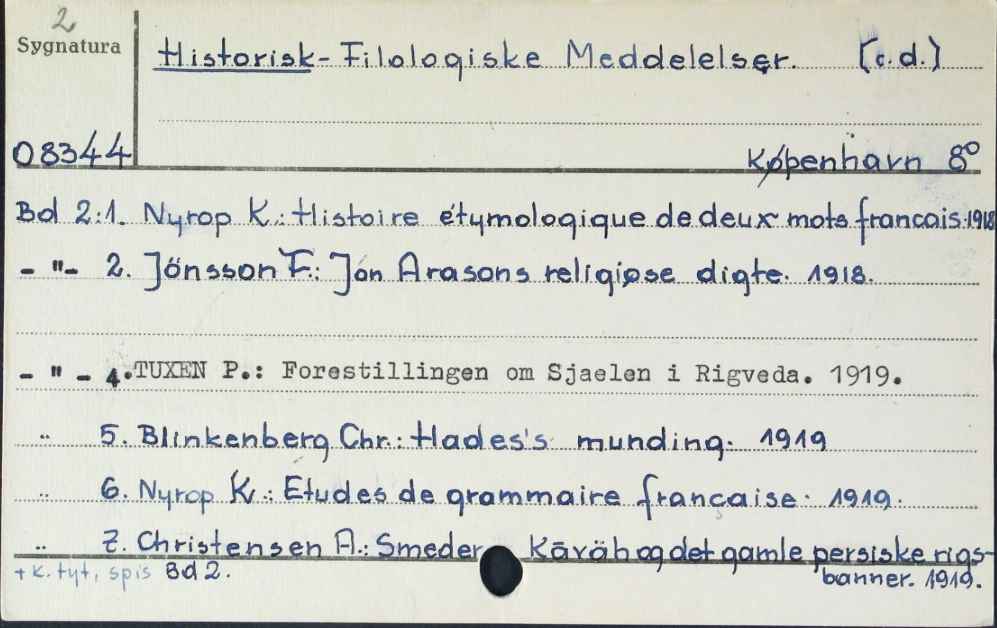 2
Sygnatura
Historisk-Filologiske Meddelelser. [c.d.]
08344
København 8°
Bd 2:1. Nyrop K.: Histoire étymologique de deux mots francais.1918
- "- 2. Jönsson F.: Jón Arasons religiøse digte. 1918.
- " - 4.TUXEN P.: Forestillingen om Sjaelen i Rigveda. 1919.
.. 5. Blinkenberg Chr.: Hades's munding. 1919
.. 6. Nyrop K.: Etudes de grammaire française. 1919.
.. 7. Christensen A.: Smeder Kāväh og det gamle persiske rigs-
banner. 1919.
+ k. tyt, spis Bd 2.